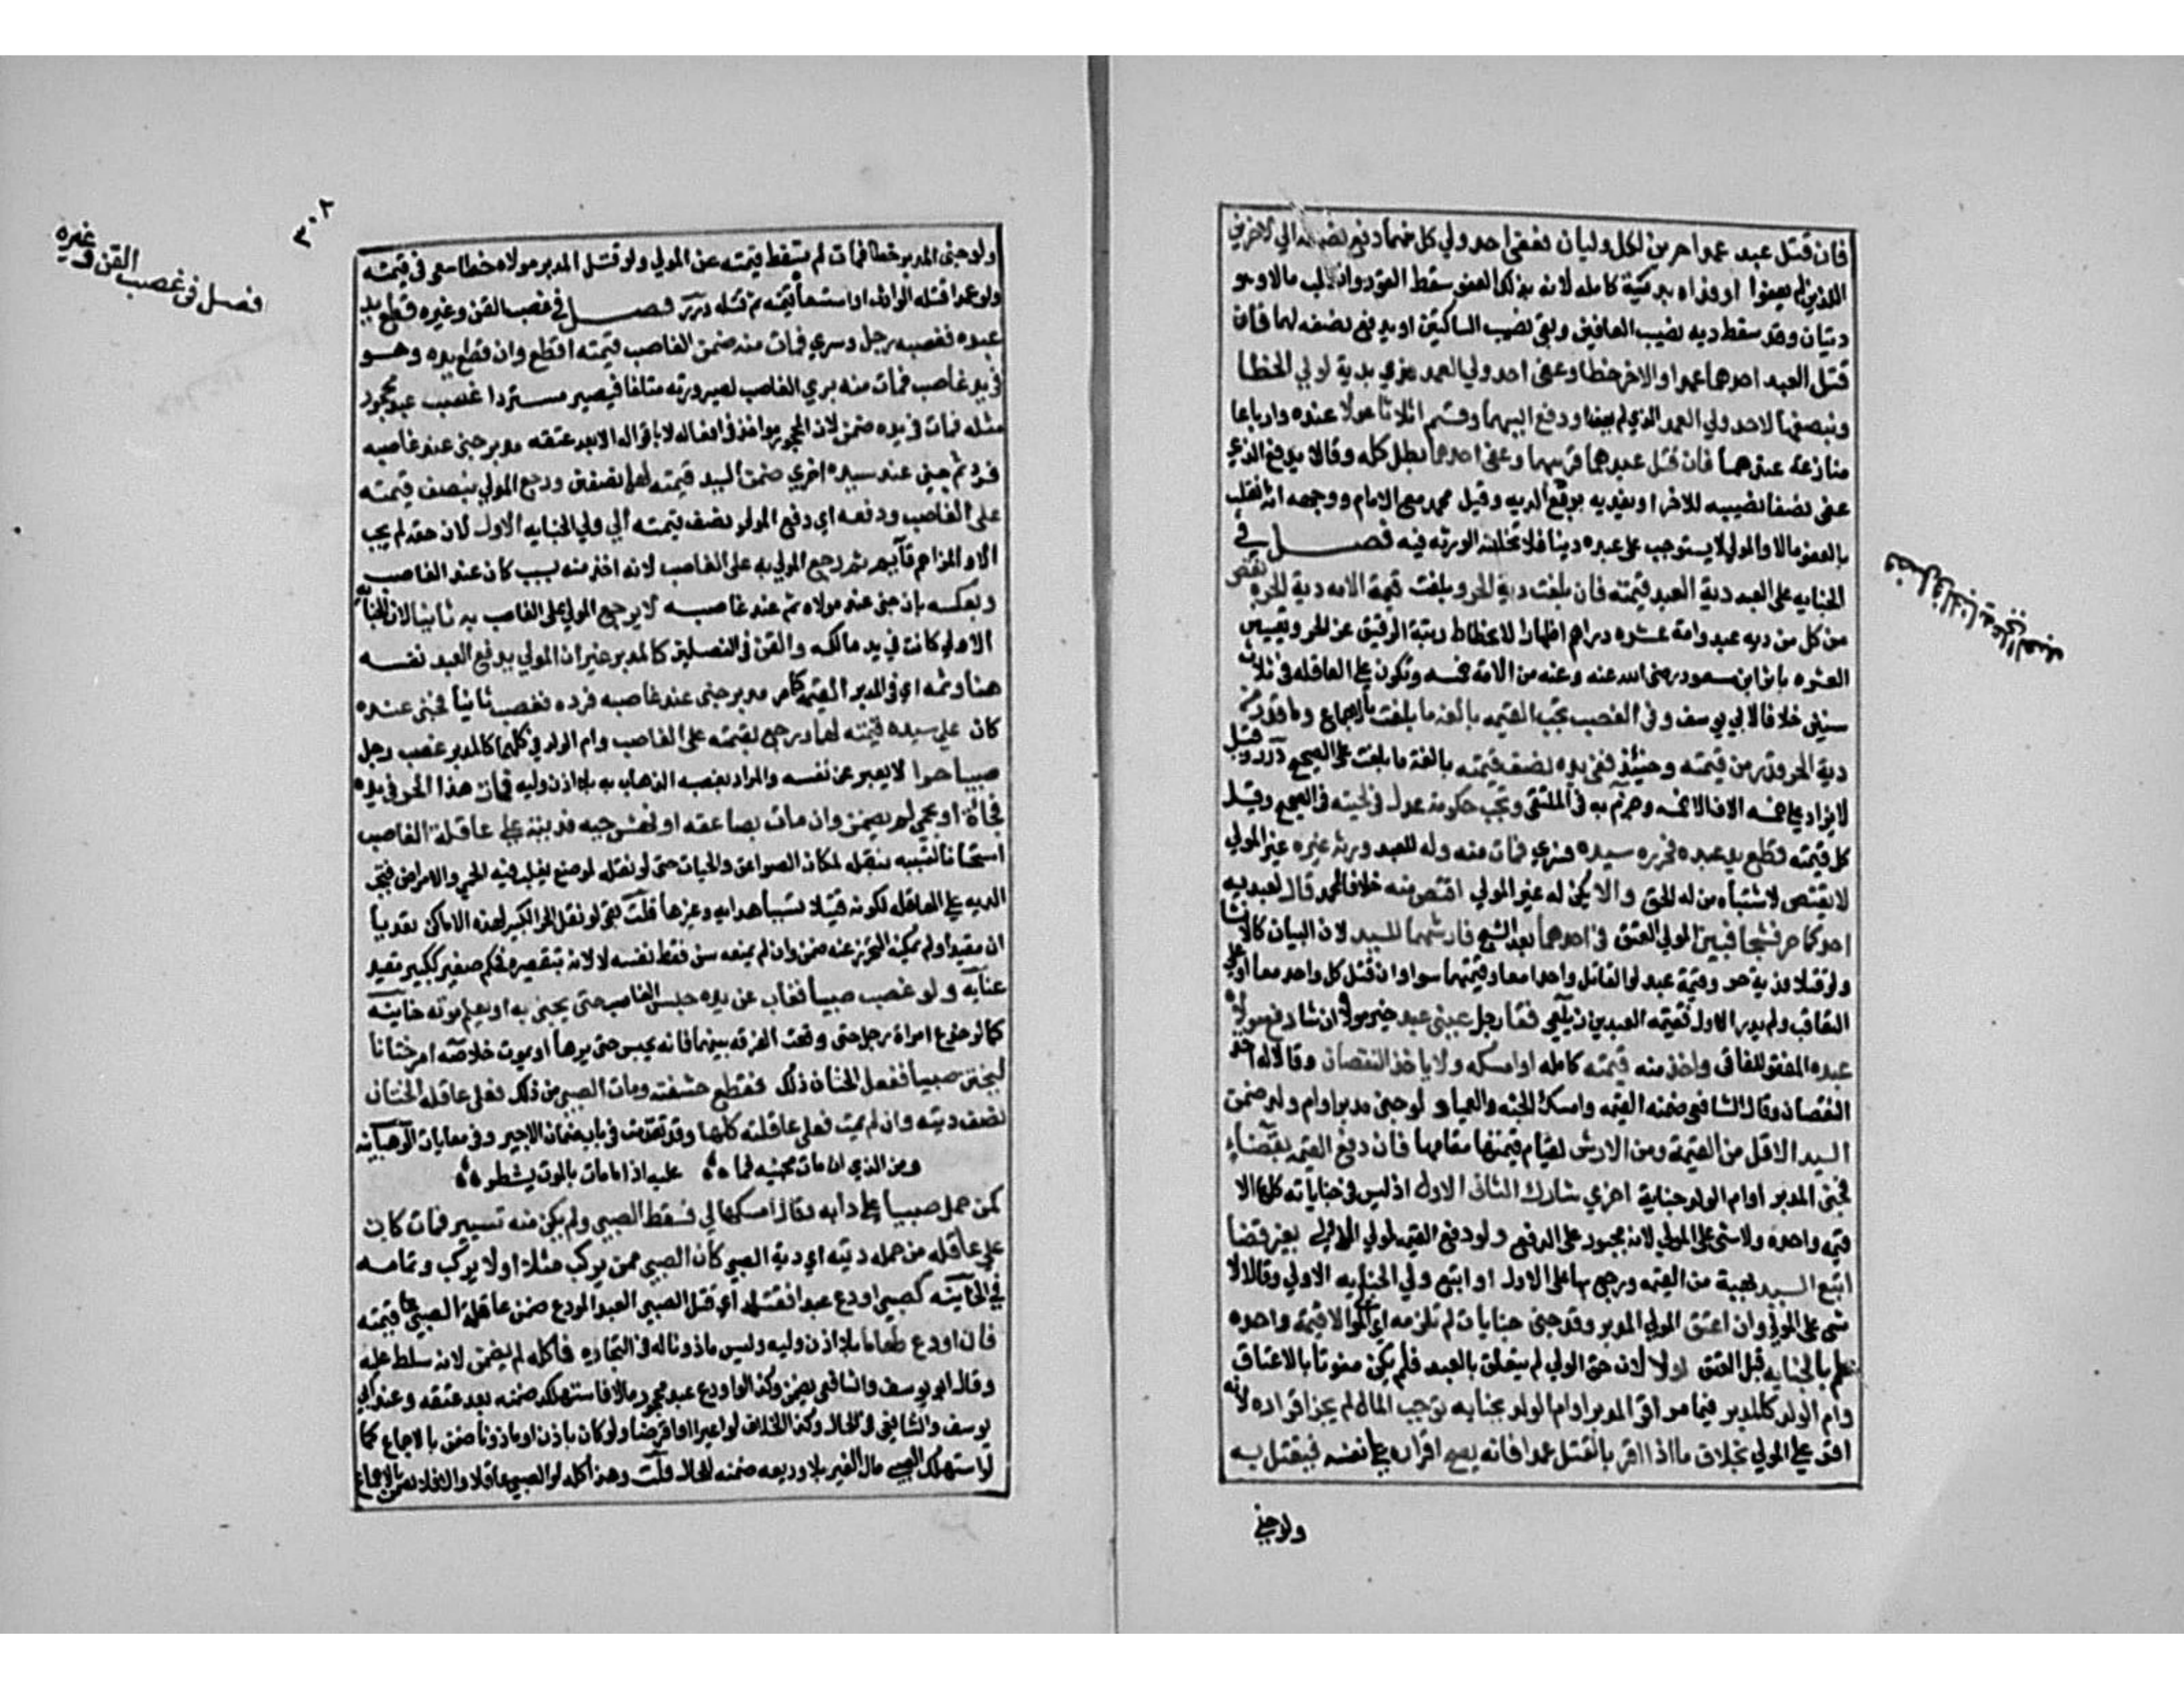 فان قتل عبد عمدا حرين لكل وليان فعفى احد ولي كل منهما دفع نصفه الي الاخرين
اللذين لم يعفوا او فداه بدية كاملة لانه بذلك العفو سقط القود وانقلب مالا وهو
ديتان وقد سقط دية نصيب العافين وبقي نصيب الساكتين او يدفع نصفه لهما فان
قتل العبد احدهما عمدا والاخر خطا وعفى احد ولي العمد فدي بدية لولي الخطا
وبنصفها لاحد ولي العمد الذي لم يعف او دفع اليهما وقسم اثلاثا عولا عنده وارباعا
منازعة عندهما فان قتل عبدهما قريبهما وعفى احدهما بطل كله وقالا يدفع الذي
عفى نصف نصيبه للاخر او يفديه بربع الديه وقيل محمد مع الامام ووجهه انه انقلب
بالعفو مالا والمولي لا يستوجب على عبده دينا فلا تخلفه الورثه فيه فصل في
الجنايه على العبد دية العبد قيمته فان بلغت دية الحر وبلغت قيمة الامه دية الحره نقص
من كل من دية عبد وامة عشره دراهم اظهارا لانحطاط رتبة الرقيق عن الحر وتعيين
العشره باثر ابن مسعود رضى الله عنه وعنه من الامه خمسه وتكون على العاقله في ثلاث
سنين خلافا لابي يوسف وفي الغصب تجب القيمه بالغه ما بلغت بالاجماع وما قدر من
دية الحر قدر من قيمته وحينئذ ففي يده نصف قيمته بالغة ما بلغت على الصحيح درر وقيل
لا يزاد على خمسه الاف الا خمسه وجزم به في الملتقى وتجب حكومة عدل في لحيته في الصحيح وقيل
كل قيمته قطع يد عبده فحرره سيده فسري فمات منه وله للعبد ورثه غيره غير المولي
لا يقتص لاشتباه من له الحق والا يكن له غير المولي اقتص منه خلافا لمحمد قال لعبديه
احدكما حر فشجا فبين المولي العتق في احدهما بعد الشج فارشهما للسيد لان البيان كالانشا
ولو قتلا فدية حر وقيمة عبد لو القاتل واحدا معا وقيمتهما سوا وان قتل كل واحد معا او على
التعاقب ولم يدر الاول فقيمة العبدين زيلعي فقا رجل عيني عبد خير مولاه ان شا دفع مولاه
عبده المفقو للفاقى واخذ منه قيمته كامله او امسكه ولا ياخذ النقصان وقالا له اخذ
النقصان وقال الشافعي ضمنه القيمه وامسك الجثه العميا ولو جنى مدبر او ام ولد ضمن
السيد الاقل من القيمة ومن الارش لقيام قيمتها مقامها فان دفع القيمه بقضاء
فجنى المدبر او ام الولد جناية اخري شارك الثاني الاول اذ ليس في جناياته كلها الا
قيمه واحده ولا شى على المولي لانه مجبور على الدفع ولو دفع القيمه لولي الاولي بغير قضا
اتبع السيد بحصته من القيمه ورجع بها على الاول او اتبع ولي الجنايه الاولي وقالا لا
شى على المولي وان اعتق المولي المدبر وقد جنى جنايات لم تلزمه اي المولي الا قيمة واحده
علم بالجنايه قبل العتق اولا لان حق الولي لم يتعلق بالعبد فلم يكن مفوتا بالاعتاق
وام الولد كالمدبر فيما مر اقر المدبر او ام الولد بجنايه توجب المال لم يجز اقراره لانه
اقر على المولي بخلاف ما اذا اقر بالقتل عمدا فانه يصح اقراره على نفسه فيقتل به
ولو جني
فصل في الجنايه على العبد
٣٠٢
فصل في غصب القن وغيره
ولو جنى المدبر خطا فمات لم تسقط قيمته عن المولي ولو قتل المدبر مولاه خطا سعى في قيمته
ولو عمدا قتله الوارث او استسعاه في قيمته ثم قتله درر فصل في غصب القن وغيره قطع يد
عبده فغصبه رجل وسري فمات منه ضمن الغاصب قيمته اقطع وان قطع يده وهو
في يد غاصب فمات منه بري الغاصب لصيرورته متلفا فيصير مستردا غصب عبد محجور
مثله فمات في يده ضمن لان المحجور مواخذ في افعاله لا باقواله الا بعد عتقه مدبر جنى عند غاصبه
فرد ثم جنى عند سيده اخري ضمن السيد قيمته لهما نصفين ورجع المولي بنصف قيمته
على الغاصب ودفعه اي دفع المولي نصف قيمته الي ولي الجنايه الاول لان حقه لم يجب
الا والمزاحم قائم ثم رجع المولي به على الغاصب لانه اخذ منه بسبب كان عند الغاصب
وبعكسه بان جنى عند مولاه ثم عند غاصبه لا يرجع المولي على الغاصب به ثانيا لان الجنايه
الاولي كانت في يد مالكه والقن في الفصلين كالمدبر غير ان المولي يدفع العبد نفسه
هنا وثمه اي في المدبر القيمه كما مر مدبر جنى عند غاصبه فرده فغصب ثانيا فجنى عنده
كان علي سيده قيمته لهما ورجع بقيمته على الغاصب وام الولد في كلها كالمدبر غصب رجل
صبيا حرا لا يعبر عن نفسه والمراد بغصبه الذهاب به بلا اذن وليه فمات هذا الحر في يده
فجأة او بحمي لم يضمن وان مات بصاعقه او نهش حيه فديته على عاقلة الغاصب
استحسانا لتسببه بنقله لمكان الصواعق والحيات حتى لو نقله لموضع يغلب فيه الحمي والامراض فتجب
الديه على العاقله لكونه قتيلا تسببا هدايه وغيرها قلت بقي لو نقل الحر الكبير لهذه الاماكن تعديا
ان مقيدا ولم يمكنه التحرز عنه ضمن وان لم يمنعه من حفظ نفسه لا لانه بتقصيره فحكم صغير ككبير مقيد
عنايه ولو غصب صبيا فغاب عن يده حبس الغاصب حتى يجئ به او يعلم موته خانيه
كما لو خدع امراة رجل حتى وقعت الفرقه بينهما فانه يحبس حتى يردها او يموت خلاصه امر ختانا
ليختن صبيا ففعل الختان ذلك فقطع حشفته ومات الصبي من ذلك فعلى عاقلة الختان
نصف ديته وان لم يمت فعلى عاقلته كلها وقد تقدمت في باب ضمان الاجير وفي معايات الوهبانيه
ومن الذي ان مات مجنيه فما ؞ عليه اذا ما مات بالموت يشطر ؞
كمن حمل صبيا على دابه وقال امسكها لي فسقط الصبي ولم يكن منه تسيير فمات كان
على عاقلة من حمله ديته اي دية الصبي كان الصبي ممن يركب مثله او لا يركب وتمامه
في الخانيه كصبي اودع عبدا فقتله اي قتل الصبي العبد المودع ضمن عاقلة الصبي قيمته
فان اودع طعاما بلا اذن وليه وليس ماذونا له في التجاره فاكله لم يضمن لانه سلطه عليه
وقال ابو يوسف والشافعي يضمن وكذا لو اودع عبد محجور مالا فاستهلكه ضمنه بعد عتقه وعند ابي
يوسف والشافعي في الحال وكذا الخلاف لو اعيرا او اقرضا ولو كان باذن او ماذونا ضمن بالاجماع كما
لو استهلك الصبي مال الغير بلا وديعه ضمنه للحال قلت وهذا كله لو الصبي عاقلا والا فلا يضمن بالاجماع